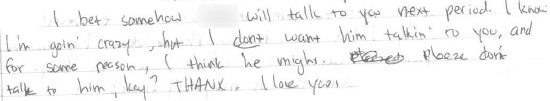 I bet somehow will talk to you next period. I know
I'm goin' crazy, but I dont want him talkin' to you, and
for some reason, I think he might. Pleeze don't
talk to him, kay? THANX. I love you,